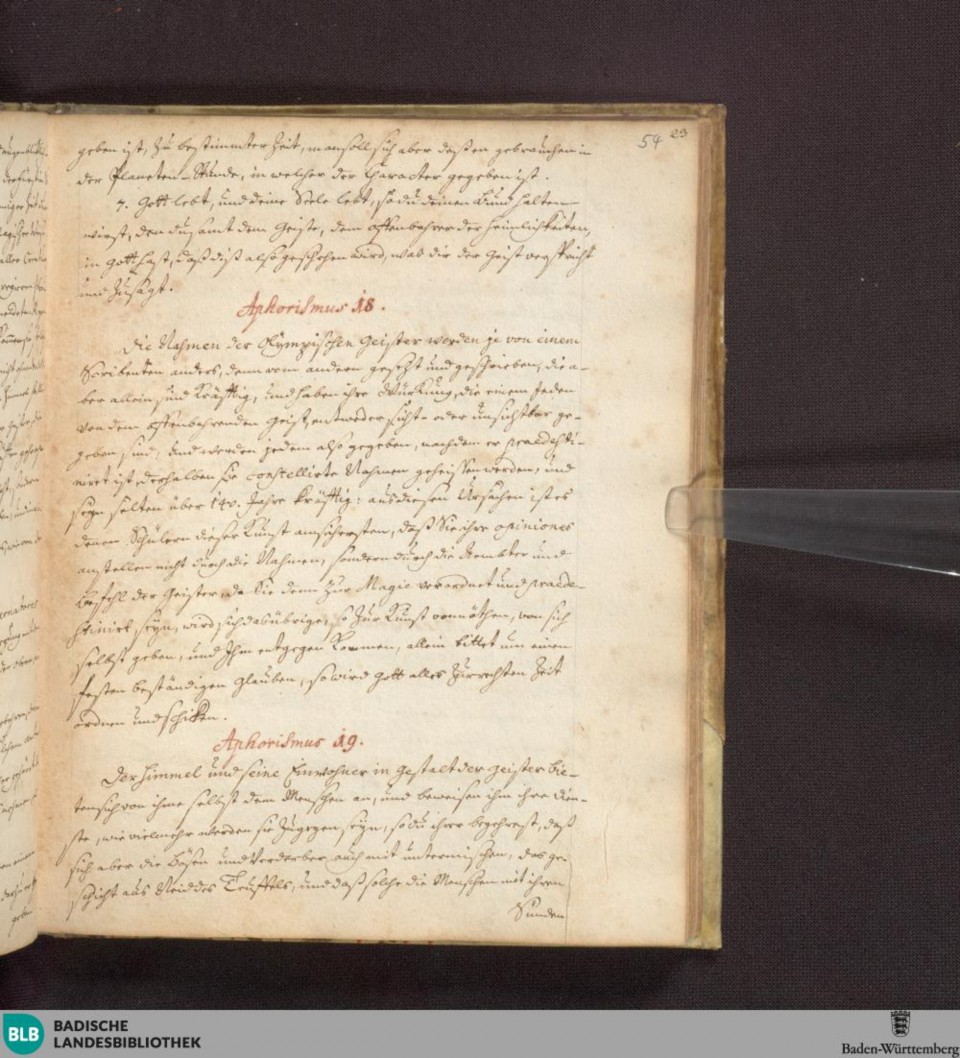 54 23
geben ist, zu bestimmter Zeit, man soll sich aber dessen gebrauchen in
der Planeten-Stunde, in welcher der Character gegeben ist.
7. Gott lebt, und deine Seele lebt, so du deinen Bund halten
wirst, den du samt dem Geiste, dem offenbahrer der heimlichkeiten,
in Gott hast, daß diß also geschehen wird, was dir der Geist verspricht
und zusagt.
Aphorismus 18.
Die Nahmen der Olympischen Geister werden je von einem
Scribenten anders, denn vom andern gesetzt und geschrieben, die a-
ber allein sind kräfftig, und haben ihre Würkung, die einem Jeden
von dem offenbahrenden Geist, entweder sicht- oder unsichtbar ge-
geben sind, und werden jedem also gegeben, nachdem er praedesti-
niret ist, derhalben sie constellirte Nahmen geheissen werden, und
seyn selten über 140. Jahre kräfftig: aus diesen Ursachen ist es
denen Schülern dieser Kunst am sichersten, daß Sie ihre opiniones
anstellen nicht durch die Nahmen, sondern durch die Aembter und
Befehl der Geister, da Sie denn zur Magie verordnet und praede-
stinirt seyn, wird sich das übrige, so zur Kunst vonnöthen, von sich
selbst geben, und Ihm entgegen kommen, allein bittet um einen
festen beständigen Glauben, so wird Gott alles zur rechten Zeit
ordnen und schicken.
Aphorismus 19.
Der Himmel und seine Einwohner in Gestalt der Geister bie-
ten sich von ihme selbst dem Menschen an, und beweisen ihm ihre Dien-
ste, wie vielmehr werden sie zugegen seyn, so du ihrer begehrest, daß
sich aber die Bösen und Verderber auch mit untermischen, das ge-
schicht aus Neid des Teuffels, und daß solche die Menschen mit ihren
Sünden
BLB BADISCHE
LANDESBIBLIOTHEK
Baden-Württemberg